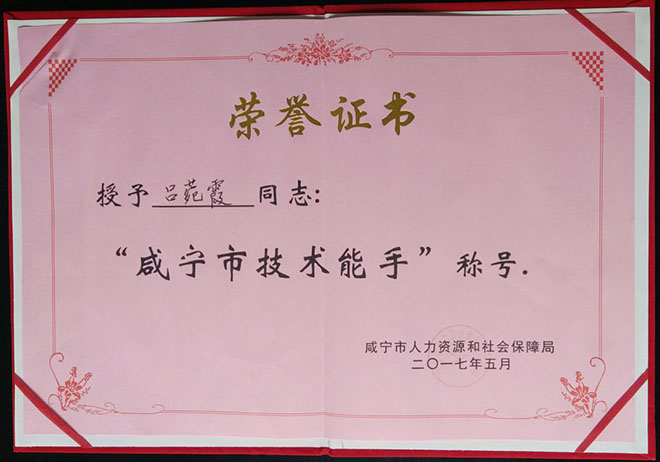 荣誉证书
授予 吕苑霞 同志:
“咸宁市技术能手”称号.
咸宁市人力资源和社会保障局
二〇一七年五月